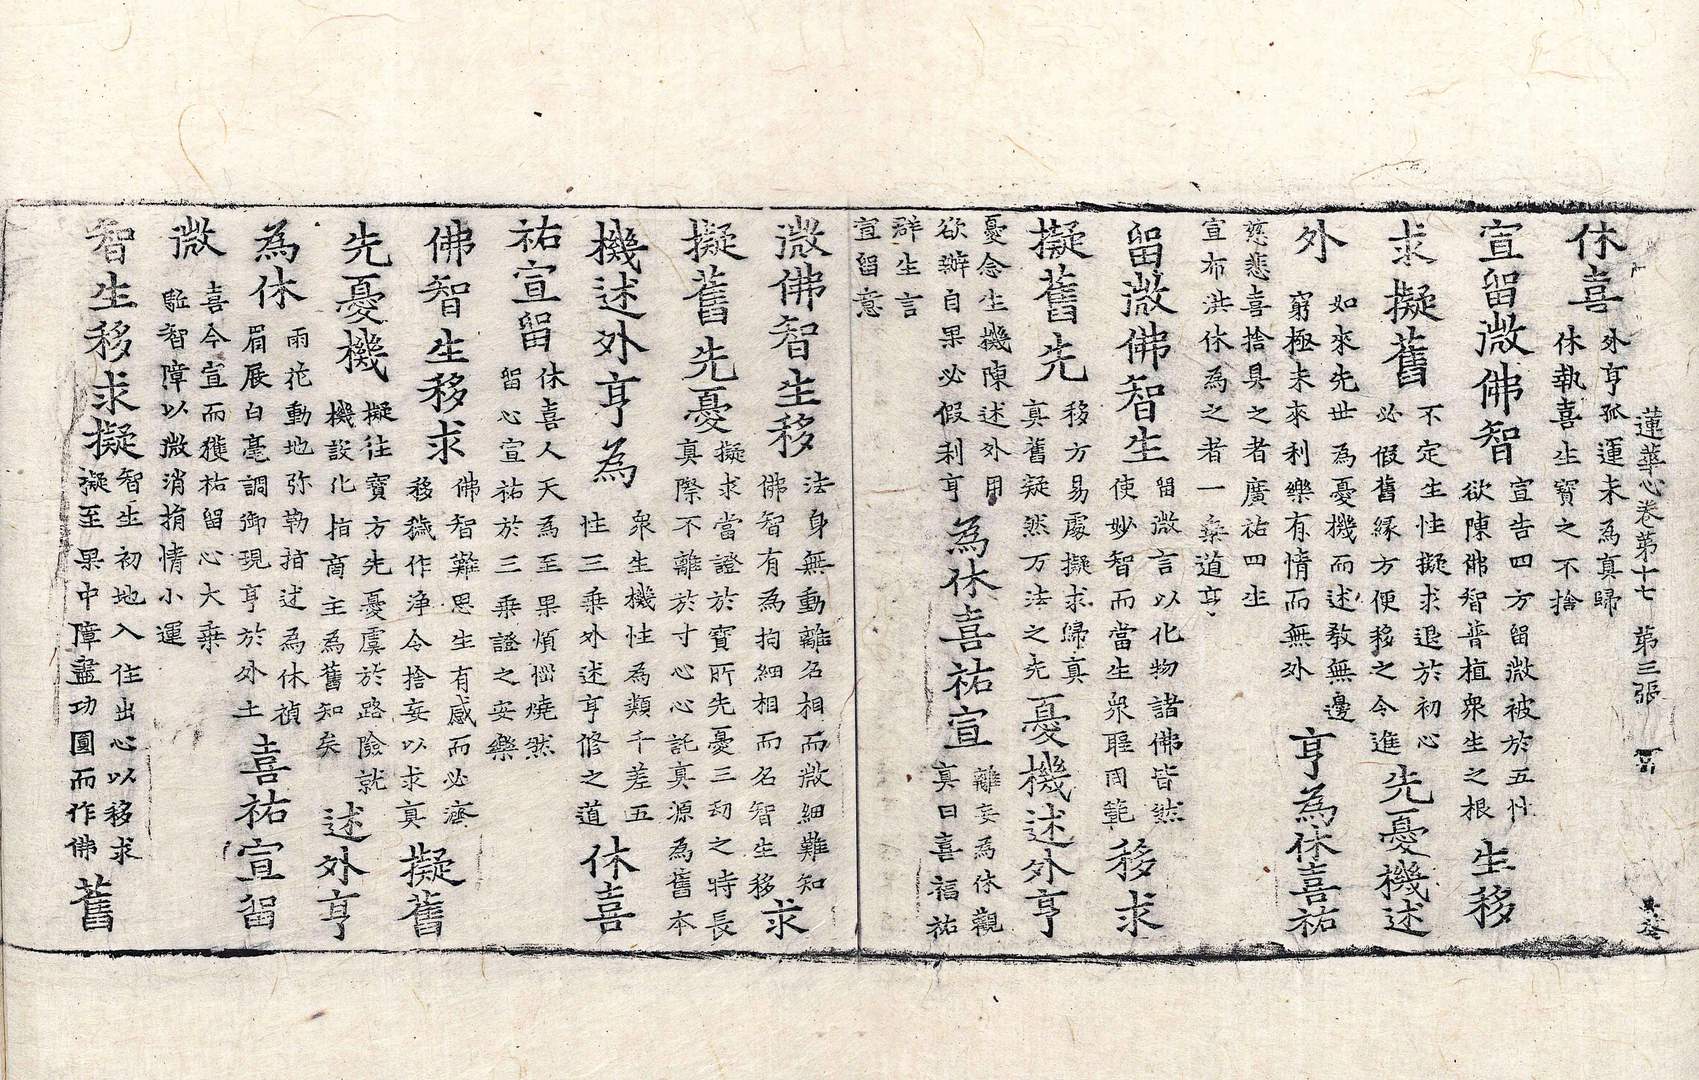 蓮華心卷第十七 第三張
休喜
外亨孤運未為真歸
休執喜生寶之不捨
宣留微佛智
宣告四方留微被於五性
欲陳佛智普植眾生之根
生移
求擬舊
不定生性擬求退於初心
必假舊緣方便移之令進
先憂機述
外
如來先世為憂機而述教無邊
窮極未來利樂有情而無外
亨為休喜祐
慈悲喜捨具之者廣祐四生
宣布洪休為之者一乘道亨
留微佛智生
留微言以化物諸佛皆然
使妙智而當生眾聖同範
移求
擬舊先
移方易處擬求歸真
真舊疑然万法之先
憂機述外亨
憂念生機陳述外用
欲辦自果必假利亨
為休喜祐宣
離妄為休觀
真曰喜福祐
群生言
宣留意
微佛智生移
法身無動離名相而微細難知
佛智有為拘細相而名智生移
求
擬舊先憂
擬求當證於寶所先憂三劫之時長
真際不離於寸心心託真源為舊本
機述外亨為
眾生機性為類千差五
性三乘外述亨修之道
休喜
祐宣留
休喜人天為至果煩惱燒然
留心宣祐於三乘證之安樂
佛智生移求
佛智難思生有感而必濟
移穢作淨令捨妄以求真
擬舊
先憂機
擬往寶方先憂虞於路險就
機設化指商主為舊知矣
述外亨
為休
雨花動地弥勒指述為休禎
眉展白毫調御現亨於外土
喜祐宣留
微
喜今宣而獲祐留心大乘
駈智障以微消捐情小運
智生移求擬
智生初地入住出心以移求
擬至果中障盡功圓而作佛
舊